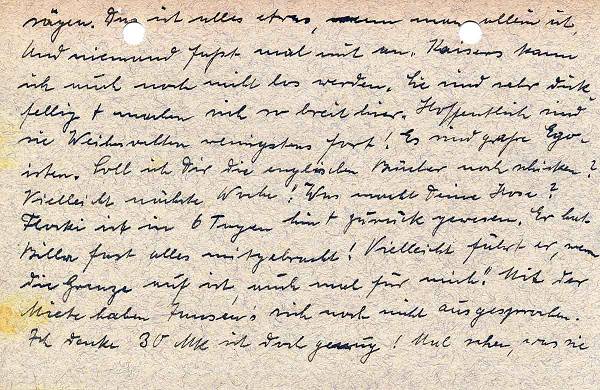 sägen. Das ist alles etwas, wenn man allein ist,
Und niemand faßt mal mit an. Kaisers kann
ich auch noch nicht los werden. Sie sind sehr dick-
fellig + machen sich so breit hier. Hoffentlich sind
sie Weihnachten wenigstens fort! Es sind große Ego-
isten. Soll ich Dir die englischen Bücher noch schicken?
Vielleicht nächste Woche! Was macht Deine Hose?
ist in 6 Tagen hin + zurück gewesen. Er hat
Billa fast alles mitgebracht! Vielleicht fährt er, wenn
die Grenze auf ist, auch mal für mich! Mit der
Miete haben sich noch nicht ausgesprochen.
Ich denke 30 Mk ist doch genug! Mal sehen, was sie